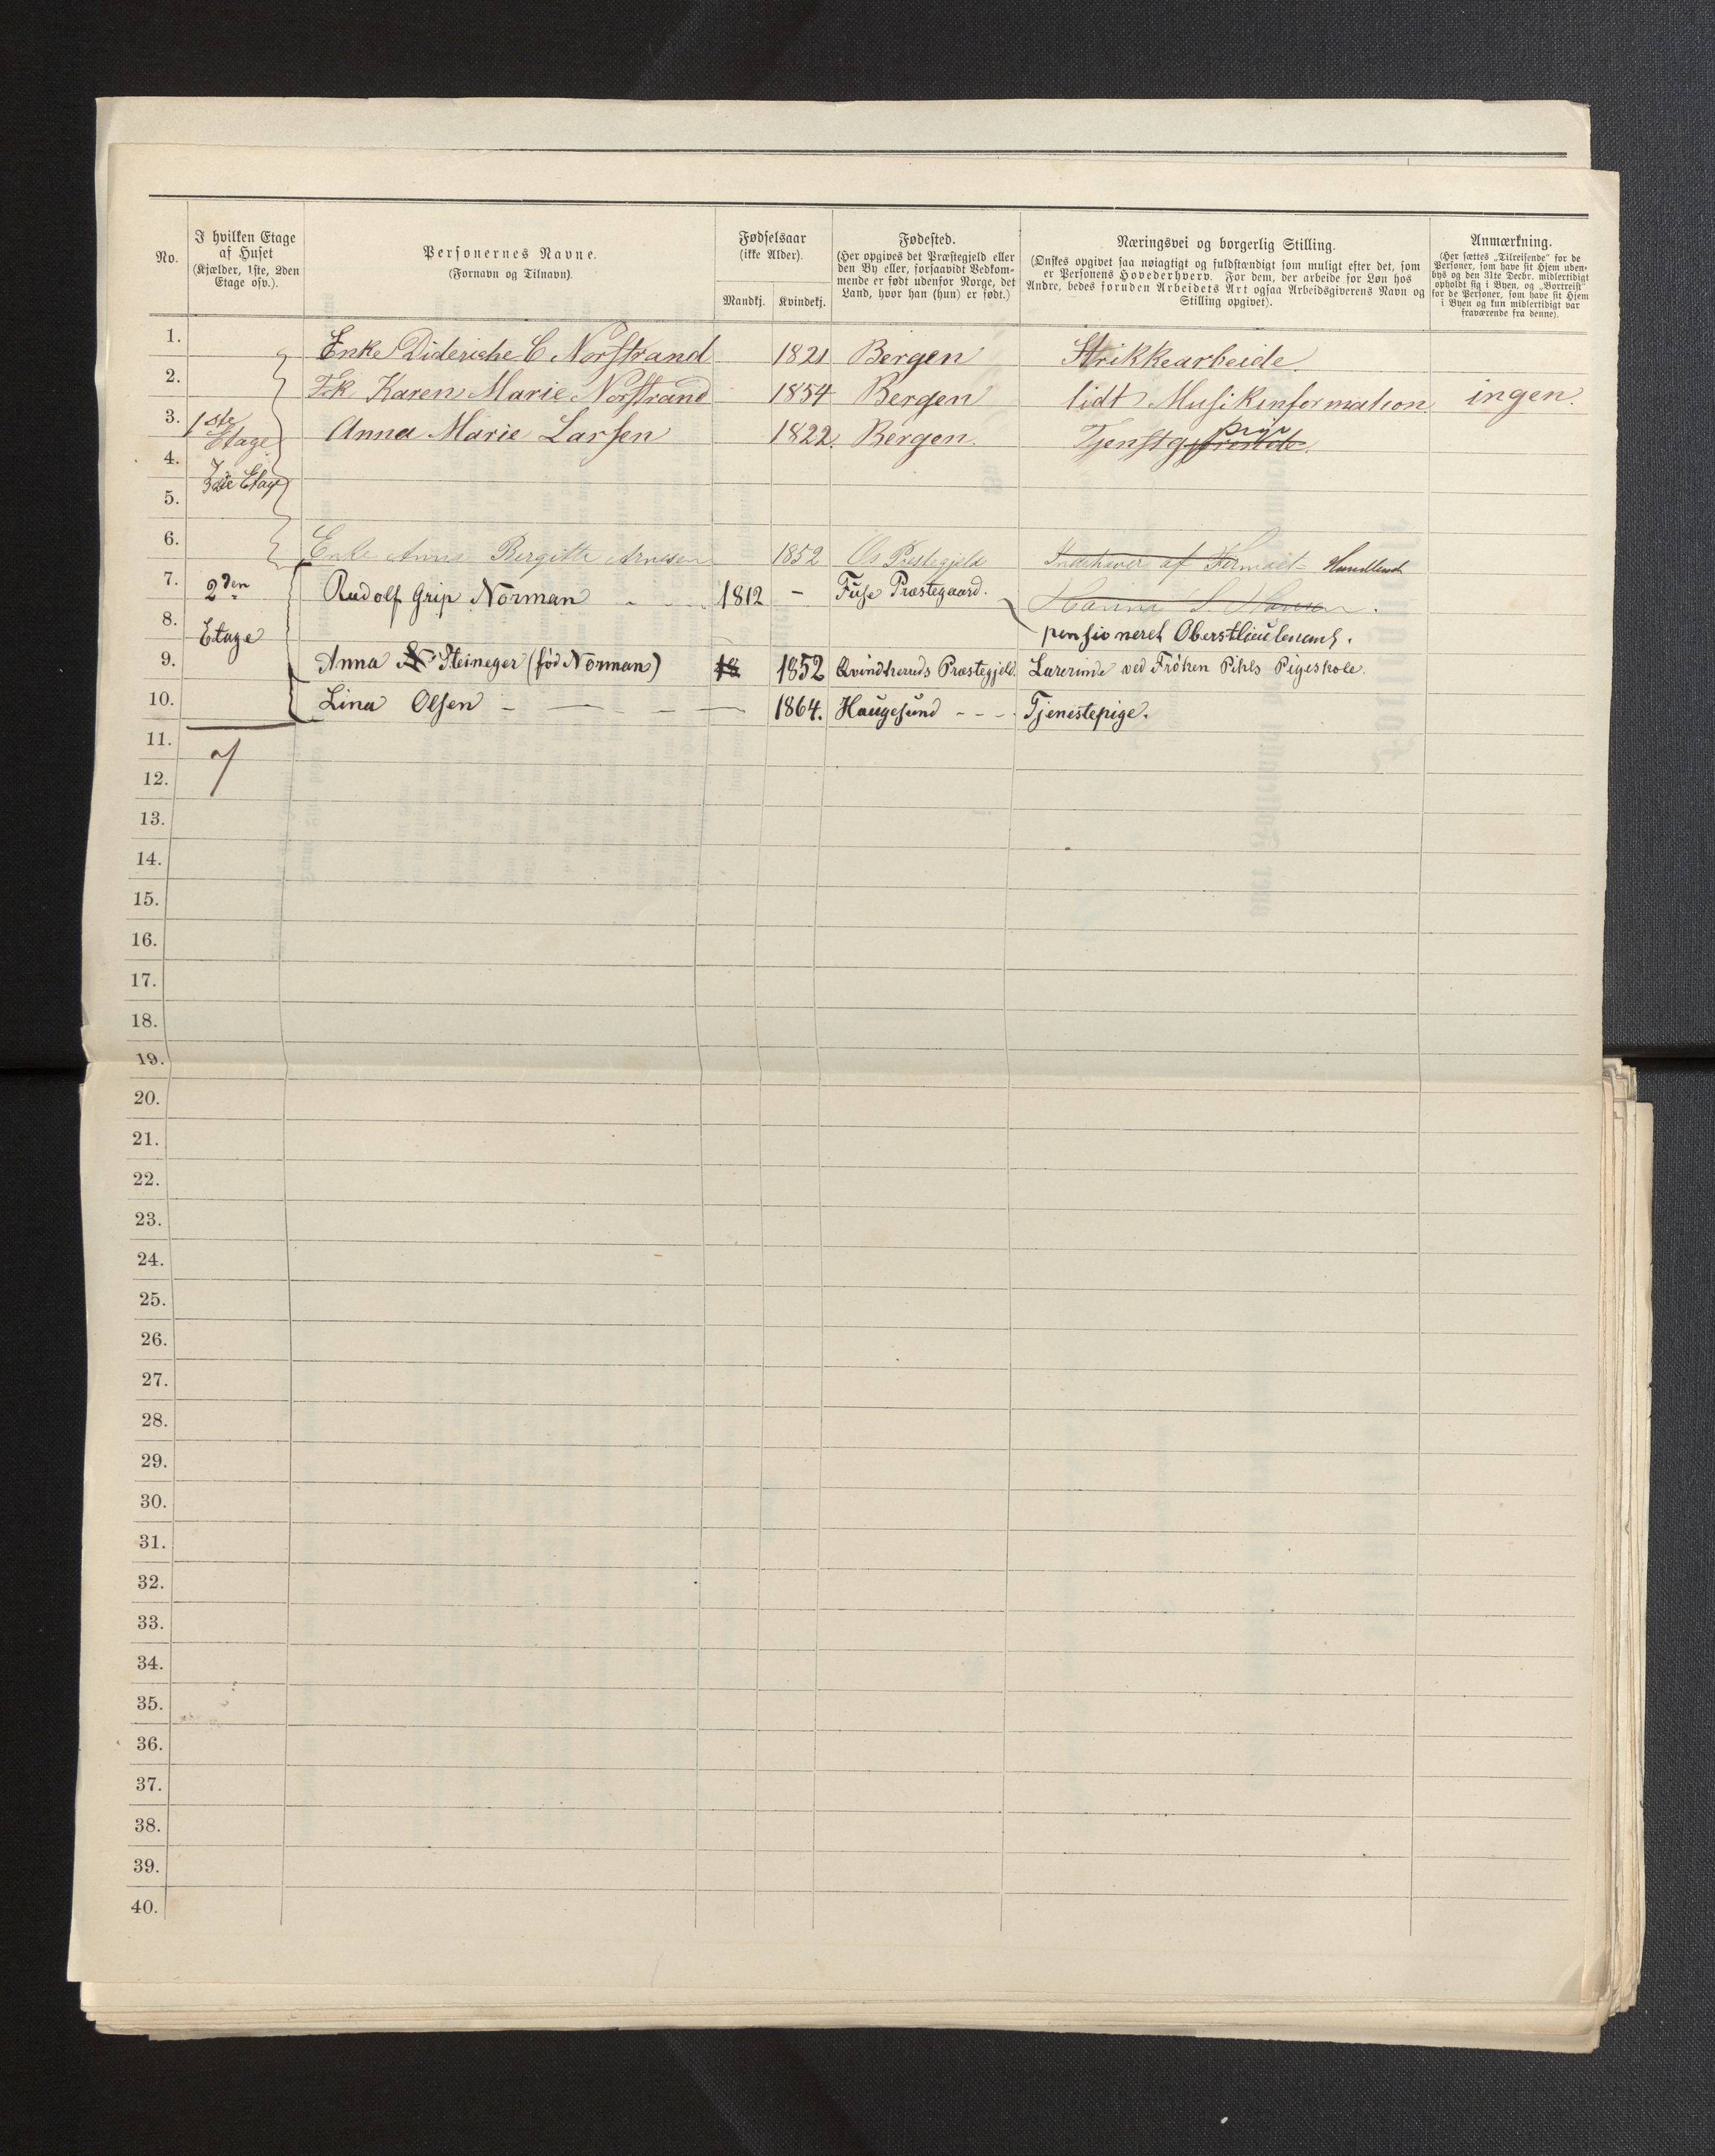 No.
I hvilken Etage af Huset (Kjælder, 1ste, 2den Etage osv.).
Personernes Navne. (Fornavn og Tilnavn).
Fødselsaar (ikke Alder).
Mandkj. Kvindekj.
Fødested. (Her opgives det Præstegjeld eller den By eller, forsaavidt Vedkommende er født udenfor Norge, det Land, hvor han (hun) er født.)
Næringsvei og borgerlig Stilling. (Ønskes opgivet saa nøiagtigt og fuldstændigt som muligt efter det, som er Personens Hovederhverv. For dem, der arbeide for Løn hos Andre, bedes foruden Arbeidets Art ogsaa Arbeidsgiverens Navn og Stilling opgivet).
Anmærkning. (Her sættes „Tilreisende" for de Personer, som have sit Hjem udenbys og den 31te Decbr. midlertidigt opholdt sig i Byen, og „Bortreist" for de Personer, som have sit Hjem i Byen og kun midlertidigt var fraværende fra denne).
1. Enke Dideriche C Norstrand 1821 Bergen Strikkearbeide.
2. Frk Karen Marie Norstrand 1854 Bergen lidt Musikinformation ingen.
3. 1ste Etage Anna Marie Larsen 1822. Bergen. Tjenst pige
4.
Etage
5.
6. Enke Anne Bergitte Arnesen 1852 Os Præstegjeld Indehaver af Handlende
7. 2den Rudolf Grip Norman 1812 - Fuse Præstegaard. Hanna S. Hansen.
8. Etage pensioneret Oberstlieutenant.
9. Anna N Steineger (fød Norman) 18 1852 Qvindherreds Præstegjeld. Lærerinde ved Frøken Pihls Pigeskole.
10. Lina Olsen - 1864. Haugesund - - - Tjenestepige.
11.
7
12.
13.
14.
15.
16.
17.
18.
19.
20.
21.
22.
23.
24.
25.
26.
27.
28.
29.
30.
31.
32.
33.
34.
35.
36.
37.
38.
39.
40.